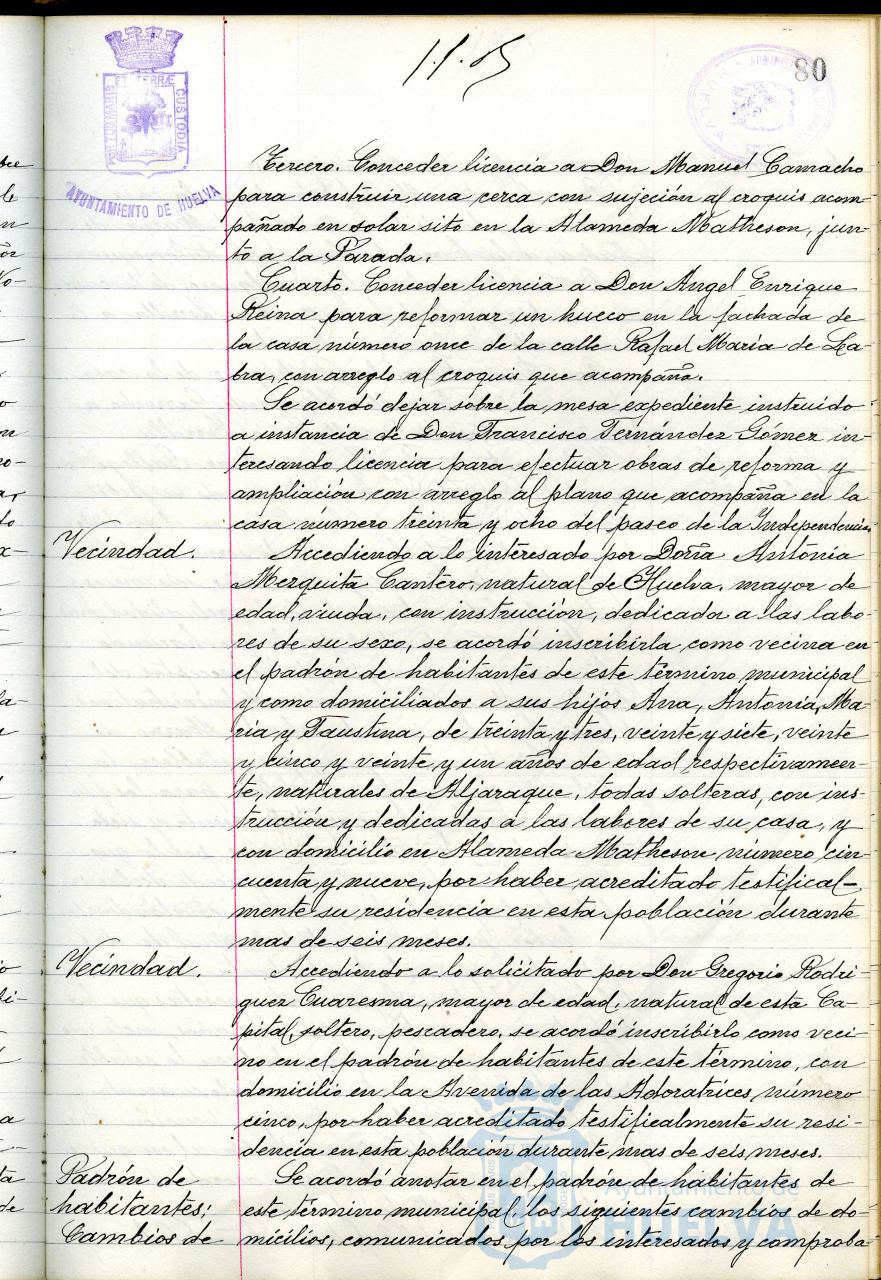 80
PORTUS MARIS
ET TERRÆ
CUSTODIA
AYUNTAMIENTO DE HUELVA
Tercero. Conceder licencia a Don Manuel Camacho
para construir una cerca con sujeción al croquis acom-
pañado en solar sito en la Alameda Matheson, jun-
to a la Parada.
Cuarto. Conceder licencia a Don Angel Enrique
Reina para reformar un hueco en la fachada de
la casa número once de la calle Rafael María de La-
bra, con arreglo al croquis que acompaña.
Se acordó dejar sobre la mesa expediente instruido
a instancia de Don Francisco Fernández Gómez in-
teresando licencia para efectuar obras de reforma y
ampliación con arreglo al plano que acompaña en la
casa número treinta y ocho del paseo de la Independencia.
Vecindad.
Accediendo a lo interesado por Doña Antonia
Mezquita Cantero, natural de Huelva, mayor de
edad, viuda, con instrucción, dedicada a las labo-
res de su sexo, se acordó inscribirla como vecina en
el padrón de habitantes de este término municipal
y como domiciliados a sus hijos Ana, Antonia, Ma-
ria y Faustina, de treinta y tres, veinte y siete, veinte
y cinco y veinte y un años de edad respectivamen-
te, naturales de Aljaraque, todas solteras, con ins-
trucción y dedicadas a las labores de su casa, y
con domicilio en Alameda Matheson número cin-
cuenta y nueve, por haber acreditado testifical-
mente su residencia en esta población durante
mas de seis meses.
Vecindad.
Accediendo a lo solicitado por Don Gregorio Rodri-
guez Cuaresma, mayor de edad, natural de esta Ca-
pital, soltero, pescadero, se acordó inscribirlo como veci-
no en el padrón de habitantes de este término, con
domicilio en la Avenida de las Adoratrices, número
cinco, por haber acreditado testifcalmente su resi-
dencia en esta población durante mas de seis meses.
Padrón de
habitantes;
Cambios de
Se acordó anotar en el padrón de habitantes de
este término municipal, los siguientes cambios de do-
micilios, comunicados por los interesados y comproba-
Ayuntamiento de
HUELVA